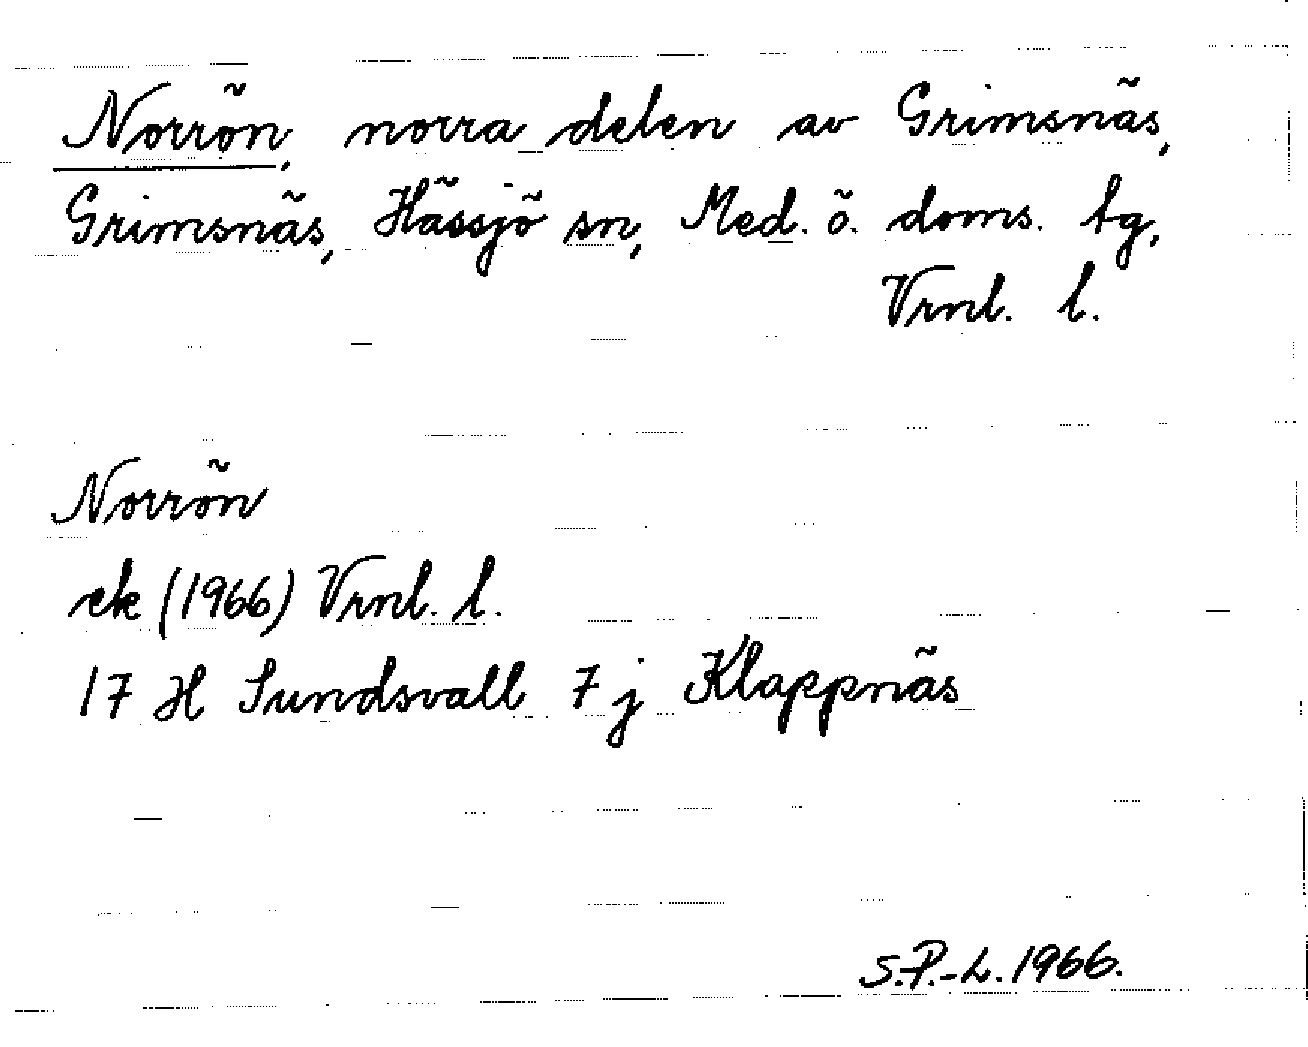 Norrön, norra delen av Grimsnäs,
Grimsnäs, Hässjö sn, Med. ö. doms. tg,
Vrnl. l.
Norrön
ek (1966) Vrnl. l.
17 H Sundsvall 7 j Klappnäs
S.P.-L. 1966.